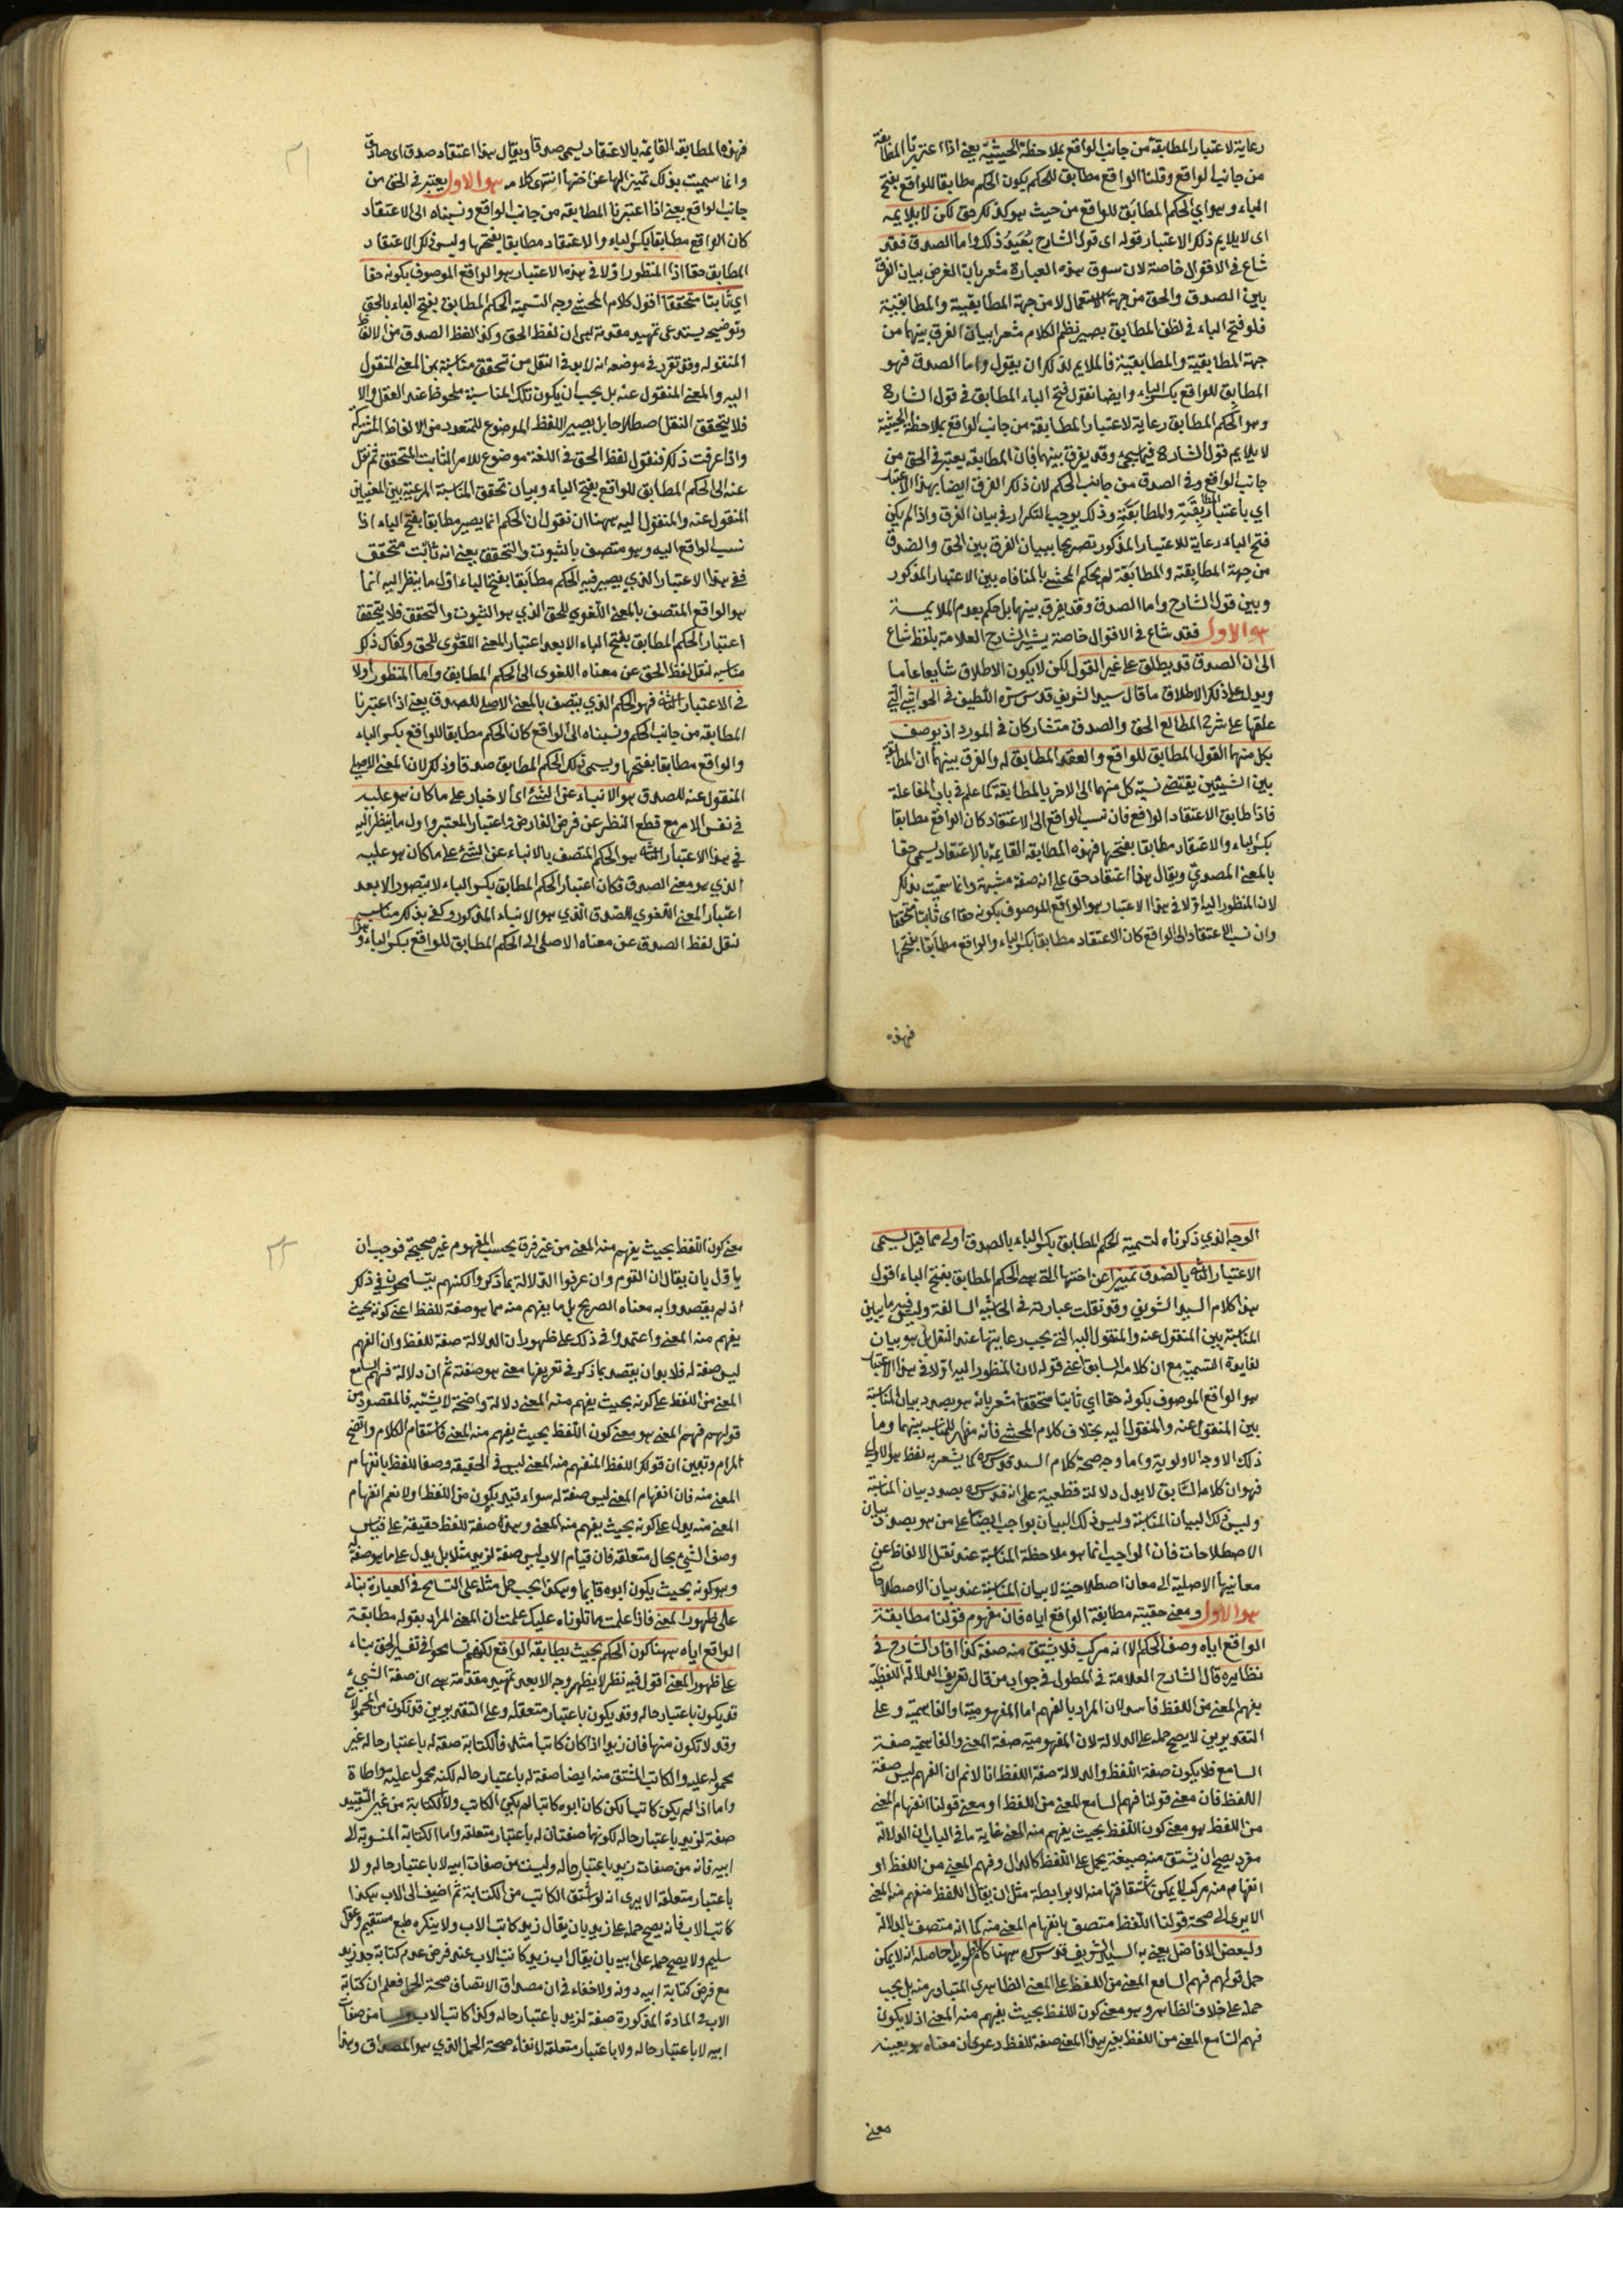 رعاية لاعتبار المطابقة من جانب الواقع بملاحظة الحيثية يعنى اذا اعتبرنا المطابقة
من جانب الواقع وقلنا الواقع مطابق للحكم يكون الحكم مطابقا للواقع بفتح
الباء وهو اى الحكم المطابق للواقع من حيث هو كذلك حق لكن لا يلايمه
اى لا يلايم ذلك الاعتبار قوله اى قول الشارح بعيد ذلك واما الصدق فقد
شاع فى الاقوال خاصة لان سوق هذه العبارة مشعر بان الغرض بيان الفرق
بين الصدق والحق من جهة الاستعمال لا من جهة المطابقية والمطابقية
فلو فتح الباء فى لفظ المطابق يصير نظم الكلام مشعرا ببيان الفرق بينهما من
جهة المطابقية والمطابقية فالملايم لذلك ان يقول واما الصدق فهو
المطابق للواقع بكسر الباء وايضا نقول فتح الباء المطابق فى قول الشارح
وهو الحكم المطابق رعاية لاعتبار المطابقة من جانب الواقع بملاحظة الحيثية
لا يلايم قول الشارح فيما سيجئ وقد يفرق بينهما بان المطابقة يعتبر فى الحق من
جانب الواقع وفى الصدق من جانب الحكم لان ذكر الفرق ايضا بهذا الاعتبار
اى باعتبار المطابقية والمطابقية وذلك يوجب التكرار فى بيان الفرق واذا لم يكن
فتح الباء رعاية للاعتبار المذكور تصريحا ببيان الفرق بين الحق والصدق
من جهة المطابقة والمطابقة لم يحكم المحشى بالمنافاه بين الاعتبار المذكور
وبين قول الشارح واما الصدق وقد يفرق بينهما بل حكم بعدم الملايمة
هو الاول فقد شاع فى الاقوال خاصة يشير الشارح العلامة بلفظ شاع
الى ان الصدق قد يطلق على غير القول لكن لا يكون الاطلاق شايعا عاما
ويدل على ذلك الاطلاق ما قال سيد الشريف قدس سره اللطيف فى الحواشى التى
علقها على شرح المطالع الحق والصدق متشاركان فى المورد اذ يوصف
بكل منهما القول المطابق للواقع والعقد المطابق له والفرق بينهما ان المطابقة
بين الشيئين يقتضى نسبة كل منهما الى الاخر بالمطابقة كما علم فى باب المفاعلة
فاذا طابق الاعتقاد الواقع فان نسب الواقع الى الاعتقاد كان الواقع مطابقا
بكسر الباء والاعتقاد مطابقا بفتحها فهذه المطابقة القايمة بالاعتقاد يسمى حقا
بالمعنى المصدرى ويقال هذا اعتقاد حق على انه صفة مشبهة وانما سميت بذلك
لان المنظور اليه اولا فى هذا الاعتبار هو الواقع الموصوف بكونه حقا اى ثابتا متحققا
وان نسب الاعتقاد الى الواقع كان الاعتقاد مطابقا بكسر الباء والواقع مطابقا بفتحها
فهذه
٢١
فهذه المطابقة القايمة بالاعتقاد يسمى صدقا ويقال هذا اعتقاد صدق اى صادق
وانما سميت بذلك تميزا لها عن اختها انتهى كلامه هو الاول يعتبر فى الحق من
جانب الواقع يعنى اذا اعتبرنا المطابقة من جانب الواقع ونسبناه الى الاعتقاد
كان الواقع مطابقا بكسر الباء والاعتقاد مطابقا بفتحها وليس ذلك الاعتقاد
المطابق حقا اذا المنظور اولا فى هذه الاعتبار هو الواقع الموصوف بكونه حقا
اى ثابتا متحققا اقول كلام المحشى وجه التسمية الحكم المطابق بفتح الباء بالحق
وتوضيحه يستدعى تمهيد مقدمة هى ان لفظ الحق وكذا لفظ الصدق من الالفاظ
المنقوله وقد تقرر فى موضعه انه لا بد فى النقل من تحقق مناسبة بين المعنى المنقول
اليه والمعنى المنقول عنه بل يجب ان يكون تلك المناسبة ملحوظا عند العقل والا
فلا يتحقق النقل اصطلاحا بل يصير اللفظ الموضوع للمتعدد من الالفاظ المشتركة
واذا عرفت ذلك فنقول لفظ الحق فى اللغة موضوع للامر الثابت المتحقق ثم نقل
عنه الى الحكم المطابق للواقع بفتح الباء وبيان تحقق المناسبة المرعية بين المعنيين
المنقول عنه والمنقول اليه ههنا ان نقول ان الحكم انما يصير مطابقا بفتح الباء اذا
نسب الواقع اليه وهو متصف بالثبوت والتحقق يعنى انه ثابت متحقق
ففى هذا الاعتبار الذى يصير فيه الحكم مطابقا بفتح الباء اول ما ينظر اليه انما
هو الواقع المتصف بالمعنى اللغوى للحق الذى هو الثبوت والتحقق فلا يتحقق
اعتبار الحكم المطابق بفتح الباء الا بعد اعتبار المعنى اللغوى للحق وكفاك ذلك
مناسبه لنقل لفظ الحق عن معناه اللغوى الى الحكم المطابق واما المنظور اولا
فى الاعتبار الثانى فهو الحكم الذى يتصف بالمعنى الاصلى للصدق يعنى اذا اعتبرنا
المطابقة من جانب الحكم ونسبناه الى الواقع كان الحكم مطابقا للواقع بكسر الباء
والواقع مطابقا بفتحها ويسمى ذلك الحكم المطابق صدقا وذلك لان المعنى الاصلى
المنقول عنه للصدق هو الانباء عن الشئ اى الاخبار على ما كان هو عليه
فى نفس الامر مع قطع النظر عن فرض الفارض واعتبار المعتبر واول ما ينظر اليه
فى هذا الاعتبار الثانى هو الحكم المتصف بالانباء عن الشئ على ما كان هو عليه
الذى هو معنى الصدق فكان اعتبار الحكم المطابق بكسر الباء لا يتصور الا بعد
اعتبار المعنى اللغوى للصدق الذى هو الانباء المذكور وكفى بذلك مناسبه
لنقل لفظ الصدق عن معناه الاصلى الى الحكم المطابق للواقع بكسر الباء وهذا
الوجه الذى ذكرناه لتسمية الحكم المطابق بكسر الباء بالصدق اولى مما قيل يسمى
الاعتبار الثانى بالصدق تمييزا عن اختها التى هى الحكم المطابق بفتح الباء اقول
هذا كلام السيد الشريف وقد نقلت عبارته فى الحاشية السالفة وليس فيه ما يبين
المناسبة بين المنقول عنه والمنقول اليه التى يجب رعايتها عند النقل بل هو بيان
لفايدة التسمية مع ان كلامه السابق اعنى قوله لان المنظور اليه اولا فى هذا الاعتبار
هو الواقع الموصوف بكونه حقا اى ثابتا متحققا مشعر بانه هو بصدد بيان المناسبة
بين المنقول عنه والمنقول اليه بخلاف كلام المحشى فانه مظهر للمناسبة بينهما وما
ذلك الا وجه الاولوية واما وجه صحة كلام السيد قدس سره كما يشعر به لفظ الاولى
فهو ان كلامه السابق لا يدل دلالة قطعية على انه قدس سره بصدد بيان المناسبة
وليس ذلك لبيان المناسبة وليس ذلك البيان بواجب ايضا على من هو بصدد بيان
الاصطلاحات فان الواجب انما هو ملاحظة المناسبة عند نقل الالفاظ عن
معانيها الاصلية الى معان اصطلاحية لا بيان المناسبة عند بيان الاصطلاحات
هو الاول ومعنى حقيته مطابقة الواقع اياه فان مفهوم قولنا مطابقة
الواقع اياه وصف الحكم الا انه مركب فلا يشتق منه صفة كذا افاد الشارح فى
نظايره قال الشارح العلامة فى المطول فى جواب من قال تعريف الدلالة اللفظية
بفهم المعنى من اللفظ فاسد لان المراد بالفهم اما المفهومية او الفاهمية وعلى
التقديرين لا يصح حمله على الدلالة لان المفهومية صفة المعنى والفاهمية صفة
السامع فلا يكون صفة اللفظ والدلالة صفة اللفظ انا لا نم ان الفهم ليس صفة
اللفظ فان معنى قولنا فهم السامع المعنى من اللفظ او معنى قولنا انفهام المعنى
من اللفظ هو معنى كون اللفظ بحيث يفهم منه المعنى غاية ما فى الباب ان الدلالة
مفرد يصح ان يشتق منه صيغة يحمل على اللفظ كالدال وفهم المعنى من اللفظ او
انفهام منه مركب لا يمكن اشتقاقها منه الا برابطة مثل ان يقال اللفظ منفهم منه المعنى
الا يرى الى صحة قولنا اللفظ متصف بانفهام المعنى منه كما انه متصف بالدلالة
ولبعض الافاضل يعنى به السيد الشريف قدس سره ههنا كلام طويل حاصله انه لا يمكن
حمل قولهم فهم السامع المعنى من اللفظ على المعنى الظاهرى المتبادر منه بل يجب
حمله على خلاف الظاهر وهو معنى كون اللفظ بحيث يفهم منه المعنى اذ لا يكون
فهم السامع المعنى من اللفظ بغير هذا المعنى صفة للفظ دعوى ان معناه هو بعينه
معنى
٢٢
معنى كون اللفظ بحيث يفهم منه المعنى من غير فرق بحسب المفهوم غير صحيحة فوجب ان
ياول بان يقال ان القوم وان عرفوا الدلالة بما ذكر ولكنهم يتسامحون فى ذلك
اذ لم يقصدوا به معناه الصريح بل ما يفهم منه مما هو صفة للفظ اعنى كونه بحيث
يفهم منه المعنى واعتمدوا فى ذلك على ظهور ان الدلالة صفة للفظ وان الفهم
ليس صفة له فلا بد ان يقصد بما ذكر فى تعريفها معنى هو صفته ثم ان دلالة فهم السامع
المعنى من اللفظ على كونه بحيث يفهم منه المعنى دلالة واضحة لا يشتبه فالمقصود من
قولهم فهم المعنى هو معنى كون اللفظ بحيث يفهم منه المعنى فاستقام الكلام واتضح
المرام وتبين ان قولك اللفظ المنفهم منه المعنى ليس فى الحقيقة وصفا للفظ بانفهام
المعنى منه فان انفهام المعنى ليس صفة له سواء قيد بكونه من اللفظ اولا نعم انفهام
المعنى منه يدل على كونه بحيث يفهم منه المعنى وهذه صفة للفظ حقيقة على قياس
وصف الشئ بحال متعلقه فان قيام الاب ليس صفة لزيد مثلا بل يدل على ما هو صفة له
وهو كونه بحيث يكون ابوه قايما وهكذا يجب حمل مثله على التسامح فى العبارة بناء
على ظهور المعنى فاذا علمت ما تلوناه عليك علمت ان المعنى المراد بقوله مطابقة
الواقع اياه ههنا كون الحكم بحيث يطابقه الواقع لكنهم تسامحوا فى تفسير الحق بناء
على ظهور المعنى اقول فيه نظر لا يظهر وجه الا بعد تمهيد مقدمة هى ان صفة الشئ
قد يكون باعتبار حاله وقد يكون باعتبار متعلقه وعلى التقديرين قد تكون من المحمولات
وقد لا تكون منها فان زيدا اذا كان كاتبا مثلا فالكتابة صفة له باعتبار حاله غير
محموله عليه والكاتب المشتق منه ايضا صفة له باعتبار حاله لكنه محمول عليه مواطاة
واما اذا لم يكن كاتبا لكن كان ابوه كاتبا لم يكن الكاتب ولا الكتابة من غير التقييد
صفة لزيد باعتبار حاله لكونها صفتان له باعتبار متعلقه واما الكتابة المنسوبة الى
ابيه فانه من صفات زيد باعتبار حاله وليست من صفات ابيه لا باعتبار حاله ولا
باعتبار متعلقه الا يرى انه لو اشتق الكاتب من الكتابة ثم اضيف الى الاب هكذا
كاتب الاب فانه يصح حمله على زيد بان يقال زيد كاتب الاب ولا ينكره طبع مستقيم وعقل
سليم ولا يصح حمله على ابيه بان يقال اب زيد كاتب الاب عند فرض عدم كتابة جد زيد
مع فرض كتابة ابيه دونه ولا خفاء فى ان مصداق الاتصاف صحة الحمل فعلم ان كتابة
الاب فى المادة المذكورة صفة لزيد باعتبار حاله وكذا كاتب الاب وليسا من صفات
ابيه لا باعتبار حاله ولا باعتبار متعلقه لانتفاء صحة الحمل الذى هو المصداق وهذا